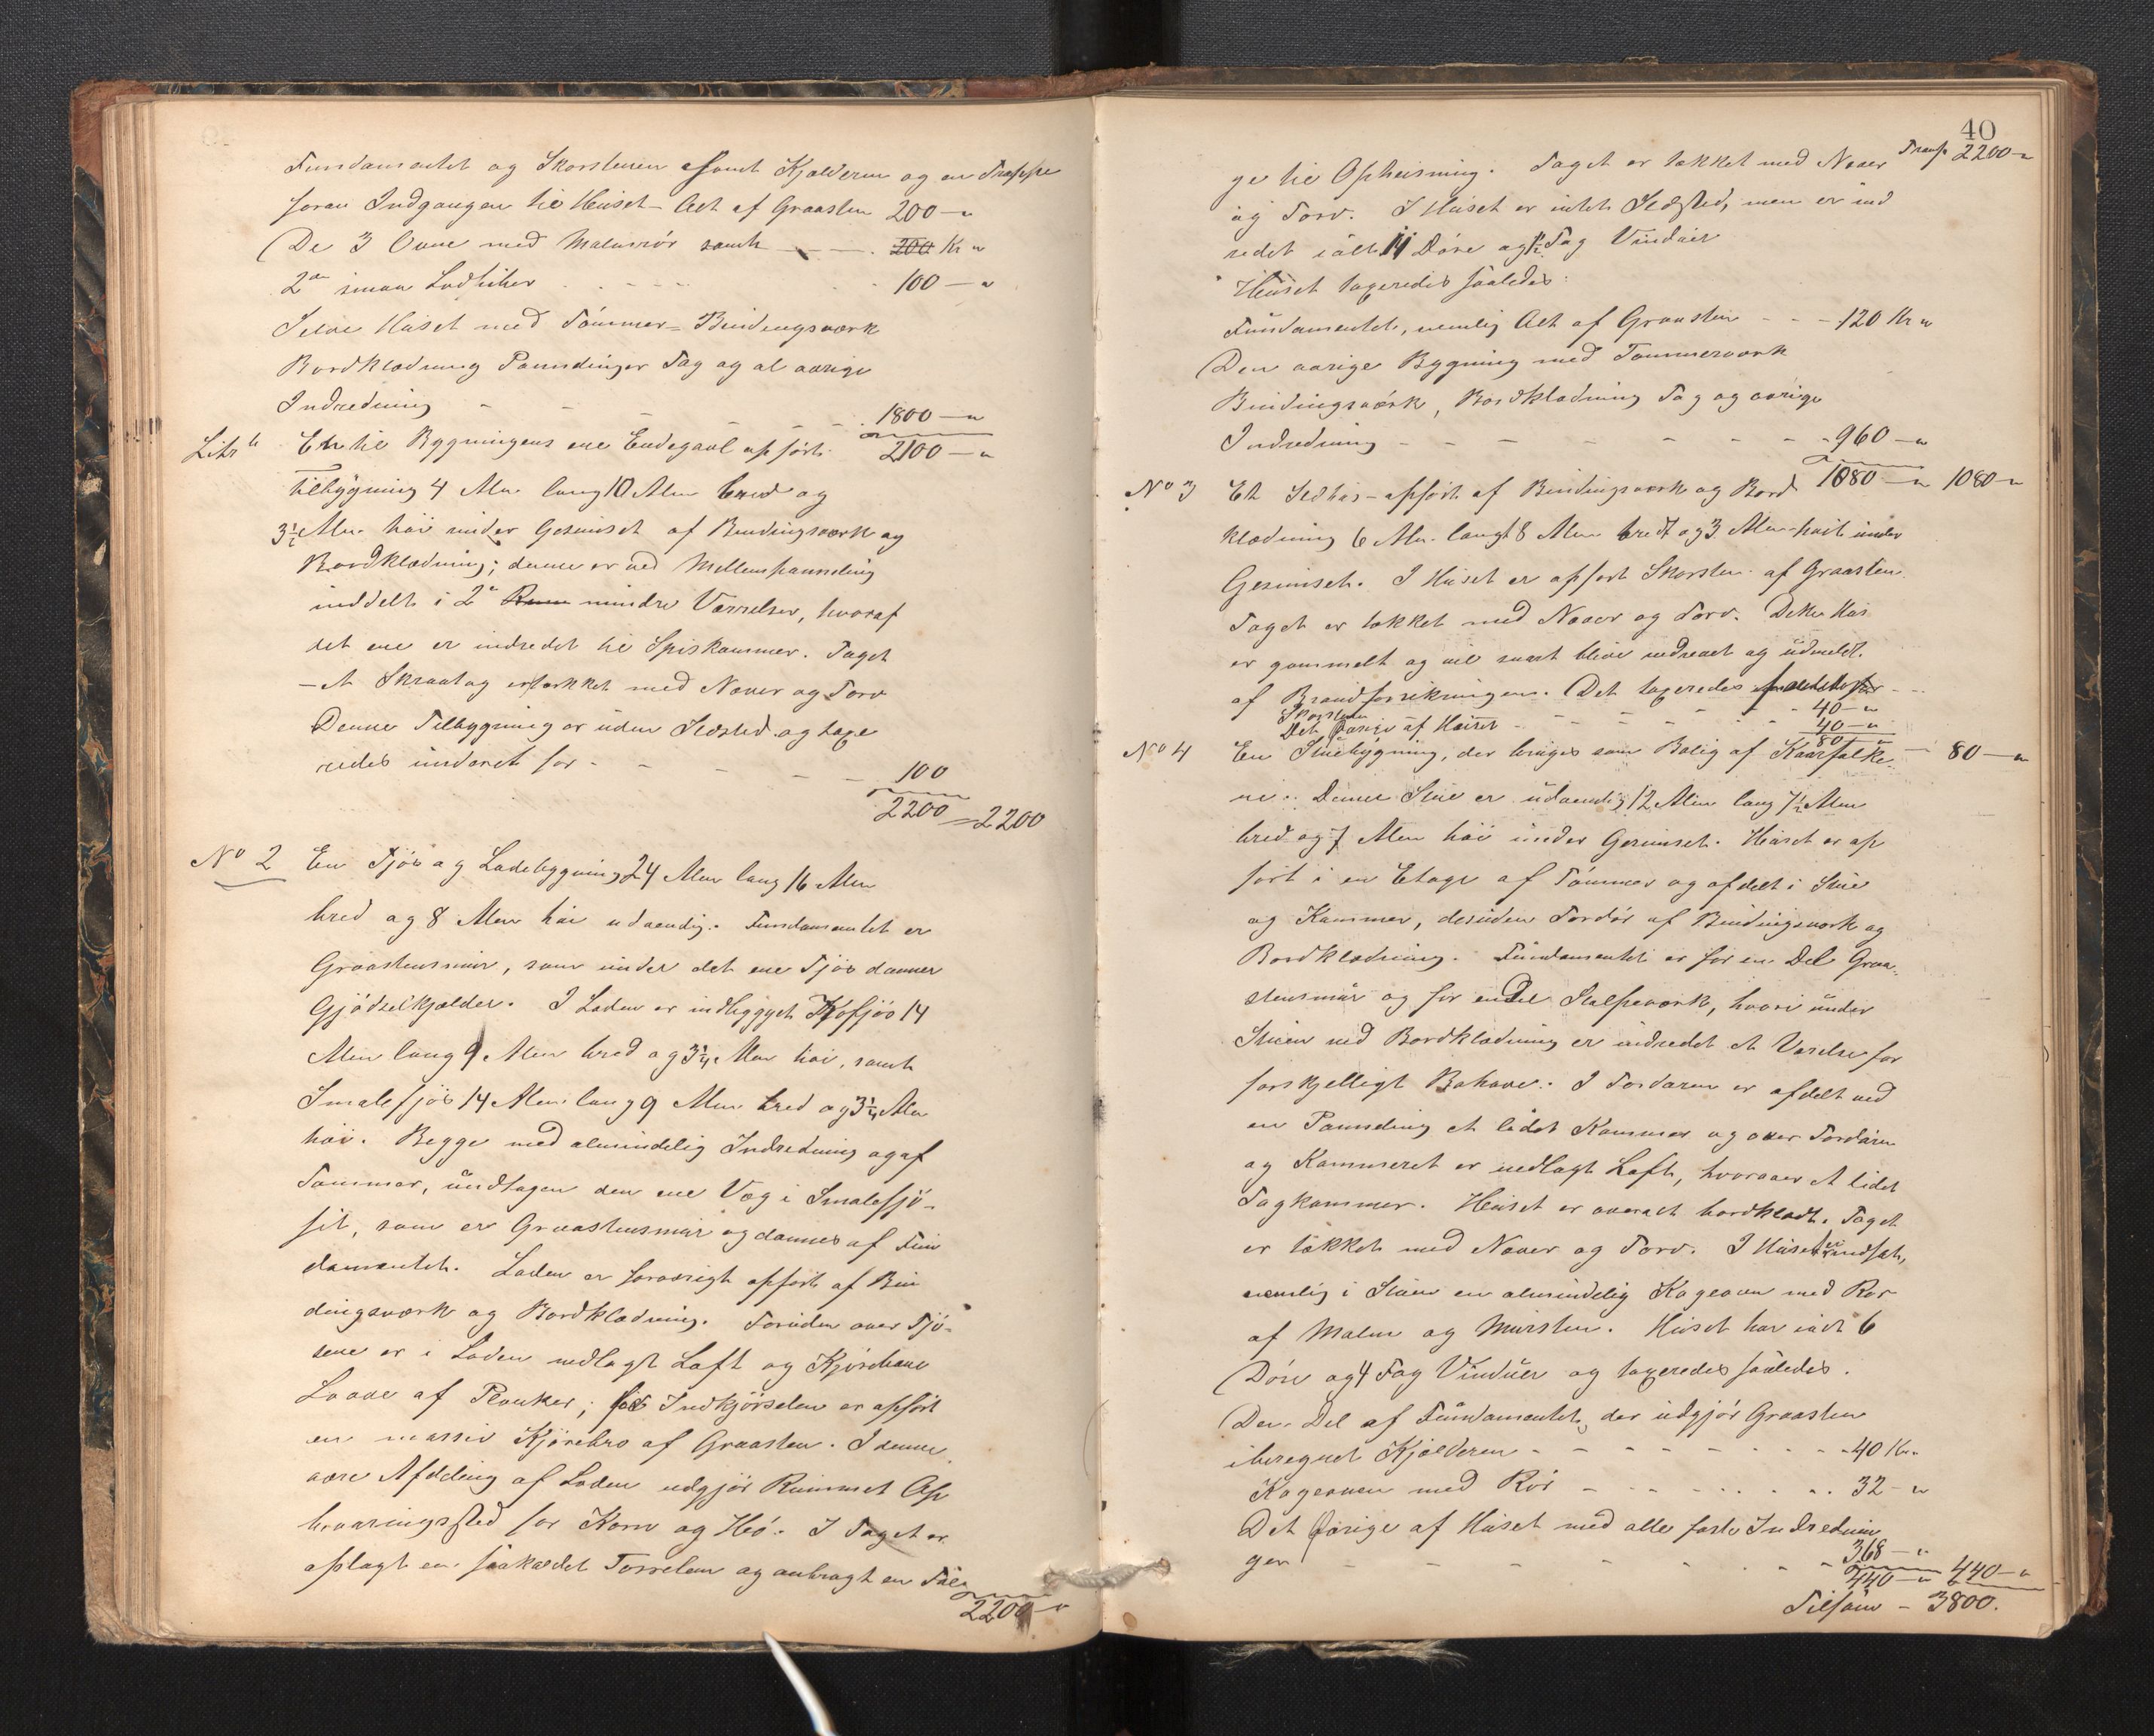 Fundamentet og Skorstenen samt Kjælderen og en Trappe
foran Indgangen til Huset – Alt af Graasten 200 – "
De 3 Ovne med Malmrör samt – – . 200 Kr "
2de smaa 100 – "
Selve Huset med Tömmer= Bindingsværk
Bordklædning Panelinger Tag og al övrige
Indredning – – – – – 1800 – "
2100 – "
Litr b En til Bygningens ene Endegavl opfört
Tilbygning 4 Alen lang 10 Alen bred og
3½ Alen höi under Gesimset af Bindingsværk og
Bordklædning; denne er ved Mellempanneling
inddelt i 2de Rum mindre Værelser, hvoraf
det ene er indredet til Spiskammer. Taget
– et Skraatag er tækket med Næver og Torv
Denne Tilbygning er uden Ildsted og taxe
redes underet for – – – – – 100
2200 = 2200
No 2 En Fjös og Ladebygning 24 Alen lang 16 Alen
bred og 8 Alen höi udvendig. Fundamentet er
Graastensmur, som under det ene Fjös danner
Gjödselkjælder. I Laden er indbygget Kofjös 14
Alen lang 9 Alen bred og 3¼ Alen höi, samt
Smalefjös 14 Alen lang 9 Alen bred og 3¼ Alen
höi. Begge med almindelig Indredning og af
Tömmer, undtagen den ene Væg i Smalefjö-
set, som er Graastensmur og dannes af Fun
damentet. Laden er forövrigt opfört af Bin
dingsværk og Bordklædning. Foruden over Fjö-
sene er i Laden nedlagt Loft og Kjörebane
Laave af Planker; for Indkjörselen er opfört
en massiv Kjörebro af Graasten. I denne
övre Afdeling af Laden udgjör Rummet Op
bevaringssted for Korn og Hö. I Taget er
oplagt en saakaldet Torvelem og anbragt en
2200 – "
40
Transp 2200 – "
ge til Opheisning. Taget er tækket med Næver
og Torv. I Huset er intet Ildsted, men er ind
redet ialt 11 Döre og Fag Vinduer
Huset taxeredes saaledes:
Fundamentet, nemlig Alt af Graasten – – – 120 Kr "
Den övrige Bygning med Tömmerværk
Bindingsværk, Bordklædning Tag og övrige
Indredning – – – – – – – 960 – "
1080 – " 1080 – "
No 3 Et Ildhus – opfört af Bindingsværk og Bord
klædning 6 Alen langt 8 Alen bredt og 3 Alen höit under
Gesimset. I Huset er opfört Skorsten af Graasten
Taget er tækket med Næver og Torv. Dette Hus
er gammelt og vil snart blive nedrevet og udmeldt
af Brandforsikringen. Det taxeredes saaledes
Skorstenen – – – – 40 – "
Det övrige af Huset – – – – 40 – "
80 – "
No 4 En Stuebygning, der bruges som Bolig af Kaarfolke – 80 – "
ne. Denne Stue er udvendig 12 Alen lang 7½ Alen
bred og 7 Alen höi under Gesimset. Huset er op
fört i en Etage af Tömmer og afdelt i Stue
og Kammer, desuden Fordör af Bindingsværk og
Bordklædning. Fundamentet er for en Del Graa-
stensmur og for en Del Stolpeværk, hvori under
Stuen ved Bordklædning er indredet et Værelse for
forskjelligt Behove. I Fordören er afdelt ved
en Panneling et lidet Kammer og over Fordören
og Kammeret er nedlagt Loft, hvorover et lidet
Tagkammer. Huset er overalt bordklædt. Taget
er tækket med Næver og Torv. I Huset er indsat,
nemlig i Stuen en almindelig Kogeovn med Rör
af Malm og Mursten. Huset har ialt 6
Döre og 4 Fag Vinduer og taxeredes saaledes.
Den Del af Fundamentet, der udgjör Graasten
iberegnet Kjælderen – – – – – – – 40 Kr "
Kogeovnen med Rör – – – – – – 32 – "
Det övrige af Huset med alle faste Indrednin
ger – – – – – – 368 – "
440 – " 440 – "
Tilsam – 3800.